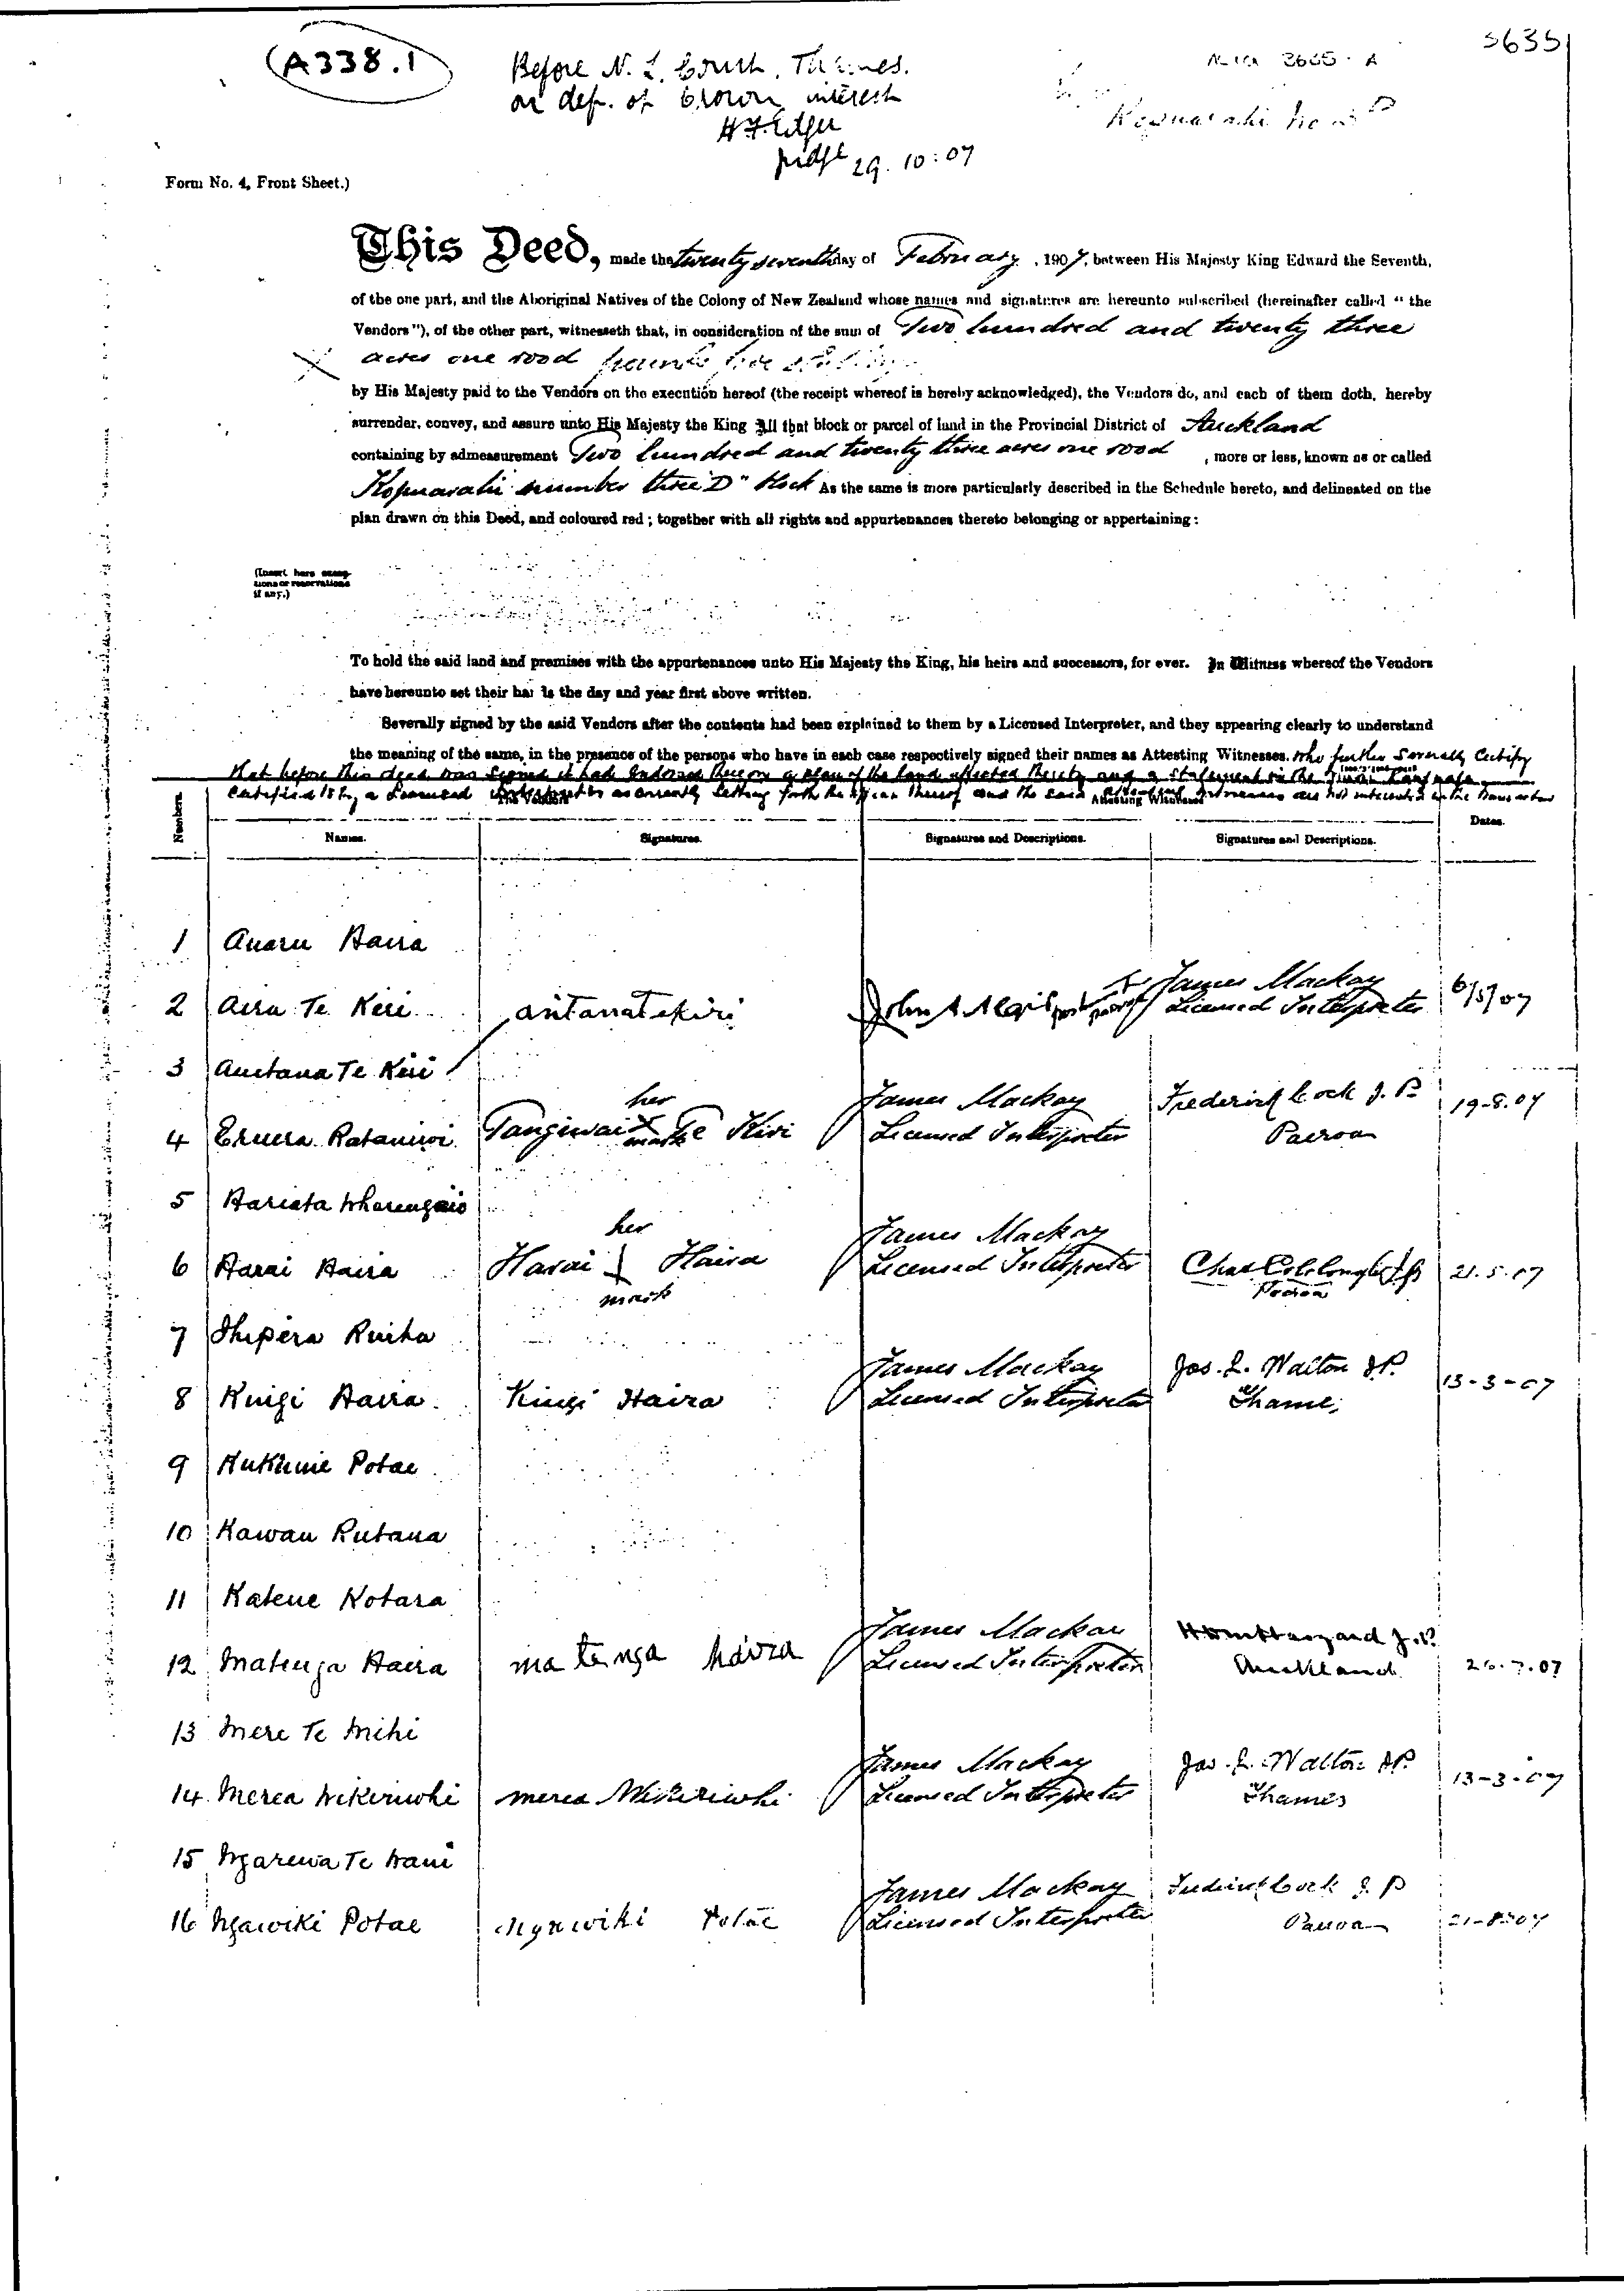 A338.1
3635
Before N. L. Court, Thames.
on def. of Crown interest
H.F. Edger
Judge 29.10:07
Form No. 4, Front Sheet.)
This Deed, made the twenty seventh day of February, 1907, between His Majesty King Edward the Seventh,
of the one part, and the Aboriginal Natives of the Colony of New Zealand whose names and signatures are hereunto subscribed (hereinafter called "the
Vendors"), of the other part, witnesseth that, in consideration of the sum of Two hundred and twenty three
acres one rood pounds five
by His Majesty paid to the Vendors on the execution hereof (the receipt whereof is hereby acknowledged), the Vendors do, and each of them doth, hereby
surrender, convey, and assure unto His Majesty the King All that block or parcel of land in the Provincial District of Auckland
containing by admeasurement Two hundred and twenty three acres one rood, more or less, known as or called
Kopuarahi number three D" Block As the same is more particularly described in the Schedule hereto, and delineated on the
plan drawn on this Deed, and coloured red; together with all rights and appurtenances thereto belonging or appertaining:
(Insert here excep-
tions or reservations
if any.)
To hold the said land and premises with the appurtenances unto His Majesty the King, his heirs and successors, for ever. In Witness whereof the Vendors
have hereunto set their hands the day and year first above written.
Severally signed by the said Vendors after the contents had been explained to them by a Licensed Interpreter, and they appearing clearly to understand
the meaning of the same, in the presence of the persons who have in each case respectively signed their names as Attesting Witnesses. Who further Severally Certify
that before this deed was signed it had endorsed thereon a plan of the land affected thereby and a statement in the Maori language
certified to by a Licensed Interpreter as correctly setting forth the effect thereof and the said Attesting Witnesses are not interested in the transaction
The Vendors Attesting Witnesses
Numbers. Names. Signatures. Signatures and Descriptions. Signatures and Descriptions. Dates.
1 Anaru Haira
2 Aira Te Keri anitanatekiri John A James Mackay Licensed Interpreter 6/5/07
3 Anitana Te Kiri
4 Eruera Rataniwi Tangiwai her x mark Te Kiri James Mackay Licensed Interpreter Frederick Cock J.P. Paeroa 19-8.07
5 Harieta Wharengaio
6 Harai Haira Harai her mark Haira James Mackay Licensed Interpreter Paeroa 21.5.07
7 Ihipera Ruiha
8 Kingi Haira Kingi Haira James Mackay Licensed Interpreter Jas. L. Walton J.P. Thames 13-3-07
9 Potae
10 Kawau Rutana
11 Katene Kotara
12 Matenga Haira ma te nga haira James Mackay Licensed Interpreter J.P. Auckland 26.7.07
13 Mere Te Mihi
14 Merea Wikiriwhi merea Wikiriwhi James Mackay Licensed Interpreter Jas. L. Walton J.P. Thames 13-3-07
15 Ngarewa Te Hani
16 Ngawiki Potae Ngawiki Potae James Mackay Licensed Interpreter Frederick Cock J.P. Paeroa 21-8-07